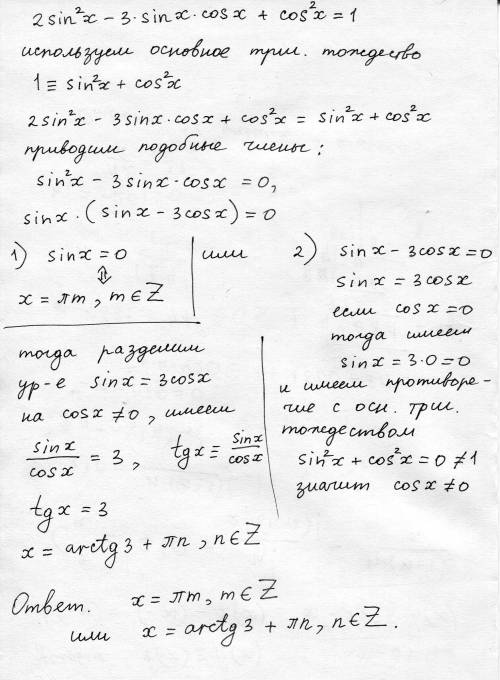 2sin²x - 3·sinx·cosx + cos²x = 1
используем основное триг. тождество
1 ≡ sin²x + cos²x
2sin²x - 3sinx·cosx + cos²x = sin²x + cos²x
приводим подобные члены:
sin²x - 3sinx·cosx = 0,
sinx·(sinx - 3cosx) = 0
1) sinx = 0
⇕
x = πm, m∈Z
или
2) sinx - 3cosx = 0
sinx = 3cosx
если cosx = 0
тогда имеем
sinx = 3·0 = 0
и имеем противоре-
чие с осн. триг.
тождеством
sin²x + cos²x = 0 ≠ 1
значит cosx ≠ 0
тогда разделим
ур-е sinx = 3cosx
на cosx ≠ 0, имеем
sinx/cosx = 3, tgx ≡ sinx/cosx
tgx = 3
x = arctg3 + πn, n∈Z
Ответ. x = πm, m∈Z
или x = arctg3 + πn, n∈Z.